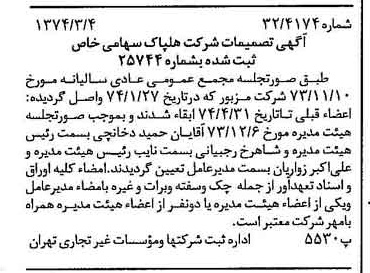 شماره ۳۲/۴۱۷۴ ۱۳۷۴/۳/۴
آگهی تصمیمات شرکت هلپاک سهامی خاص
ثبت شده بشماره ۲۵۷۴۴
طبق صورتجلسه مجمع عمومی عادی سالیانه مورخ
۷۳/۱۱/۱۰ شرکت مزبور که درتاریخ ۷۴/۱/۲۷ واصل گردیده:
اعضاء قبلی تاتاریخ ۷۴/۴/۳۱ ابقاء شدند و بموجب صورتجلسه
هیئت مدیره مورخ ۷۳/۱۲/۶ آقایان حمید دخانچی بسمت رئیس
هیئت مدیره و شاهرخ رجبیانی بسمت نایب رئیس هیئت مدیره و
علی‌اکبر زواریان بسمت مدیرعامل تعیین گردیدند.امضاء کلیه اوراق
و اسناد تعهدآور از جمله چک وسفته وبرات و غیره بامضاء مدیرعامل
ویکی از اعضاء هیئت مدیره یا دونفر از اعضاء هیئت مدیره همراه
بامهر شرکت معتبر است.
پ ۵۵۳۰ اداره ثبت شرکتها ومؤسسات غیر تجاری تهران